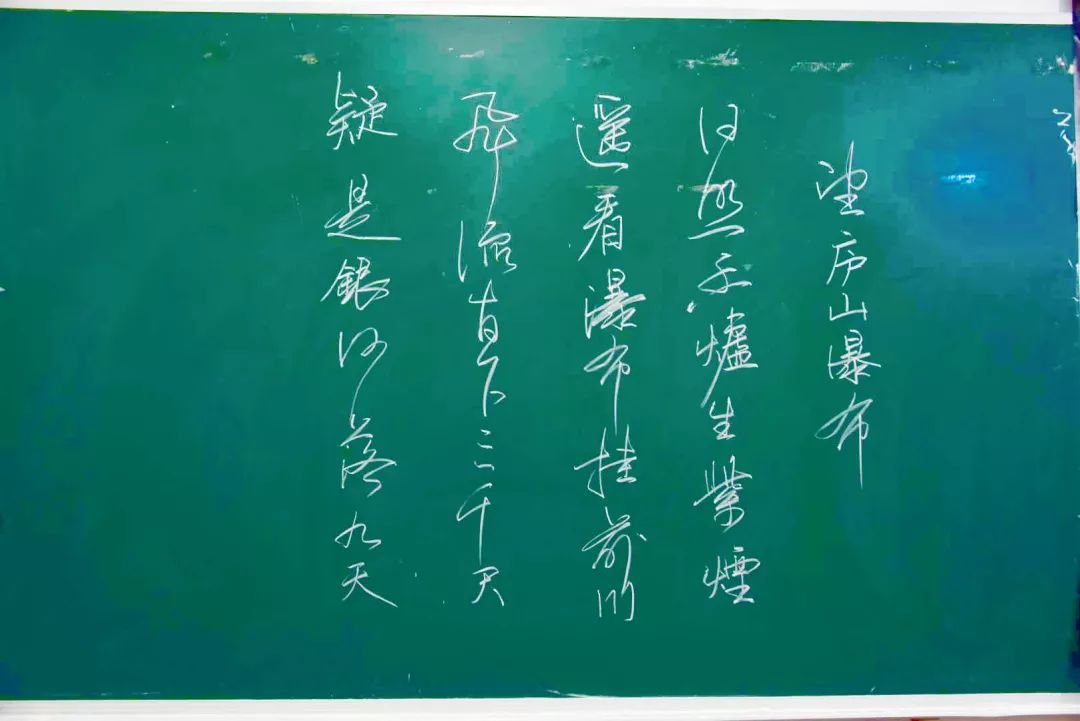 望庐山瀑布
日照香爐生紫煙
遥看瀑布挂前川
飛流直下三千尺
疑是銀河落九天